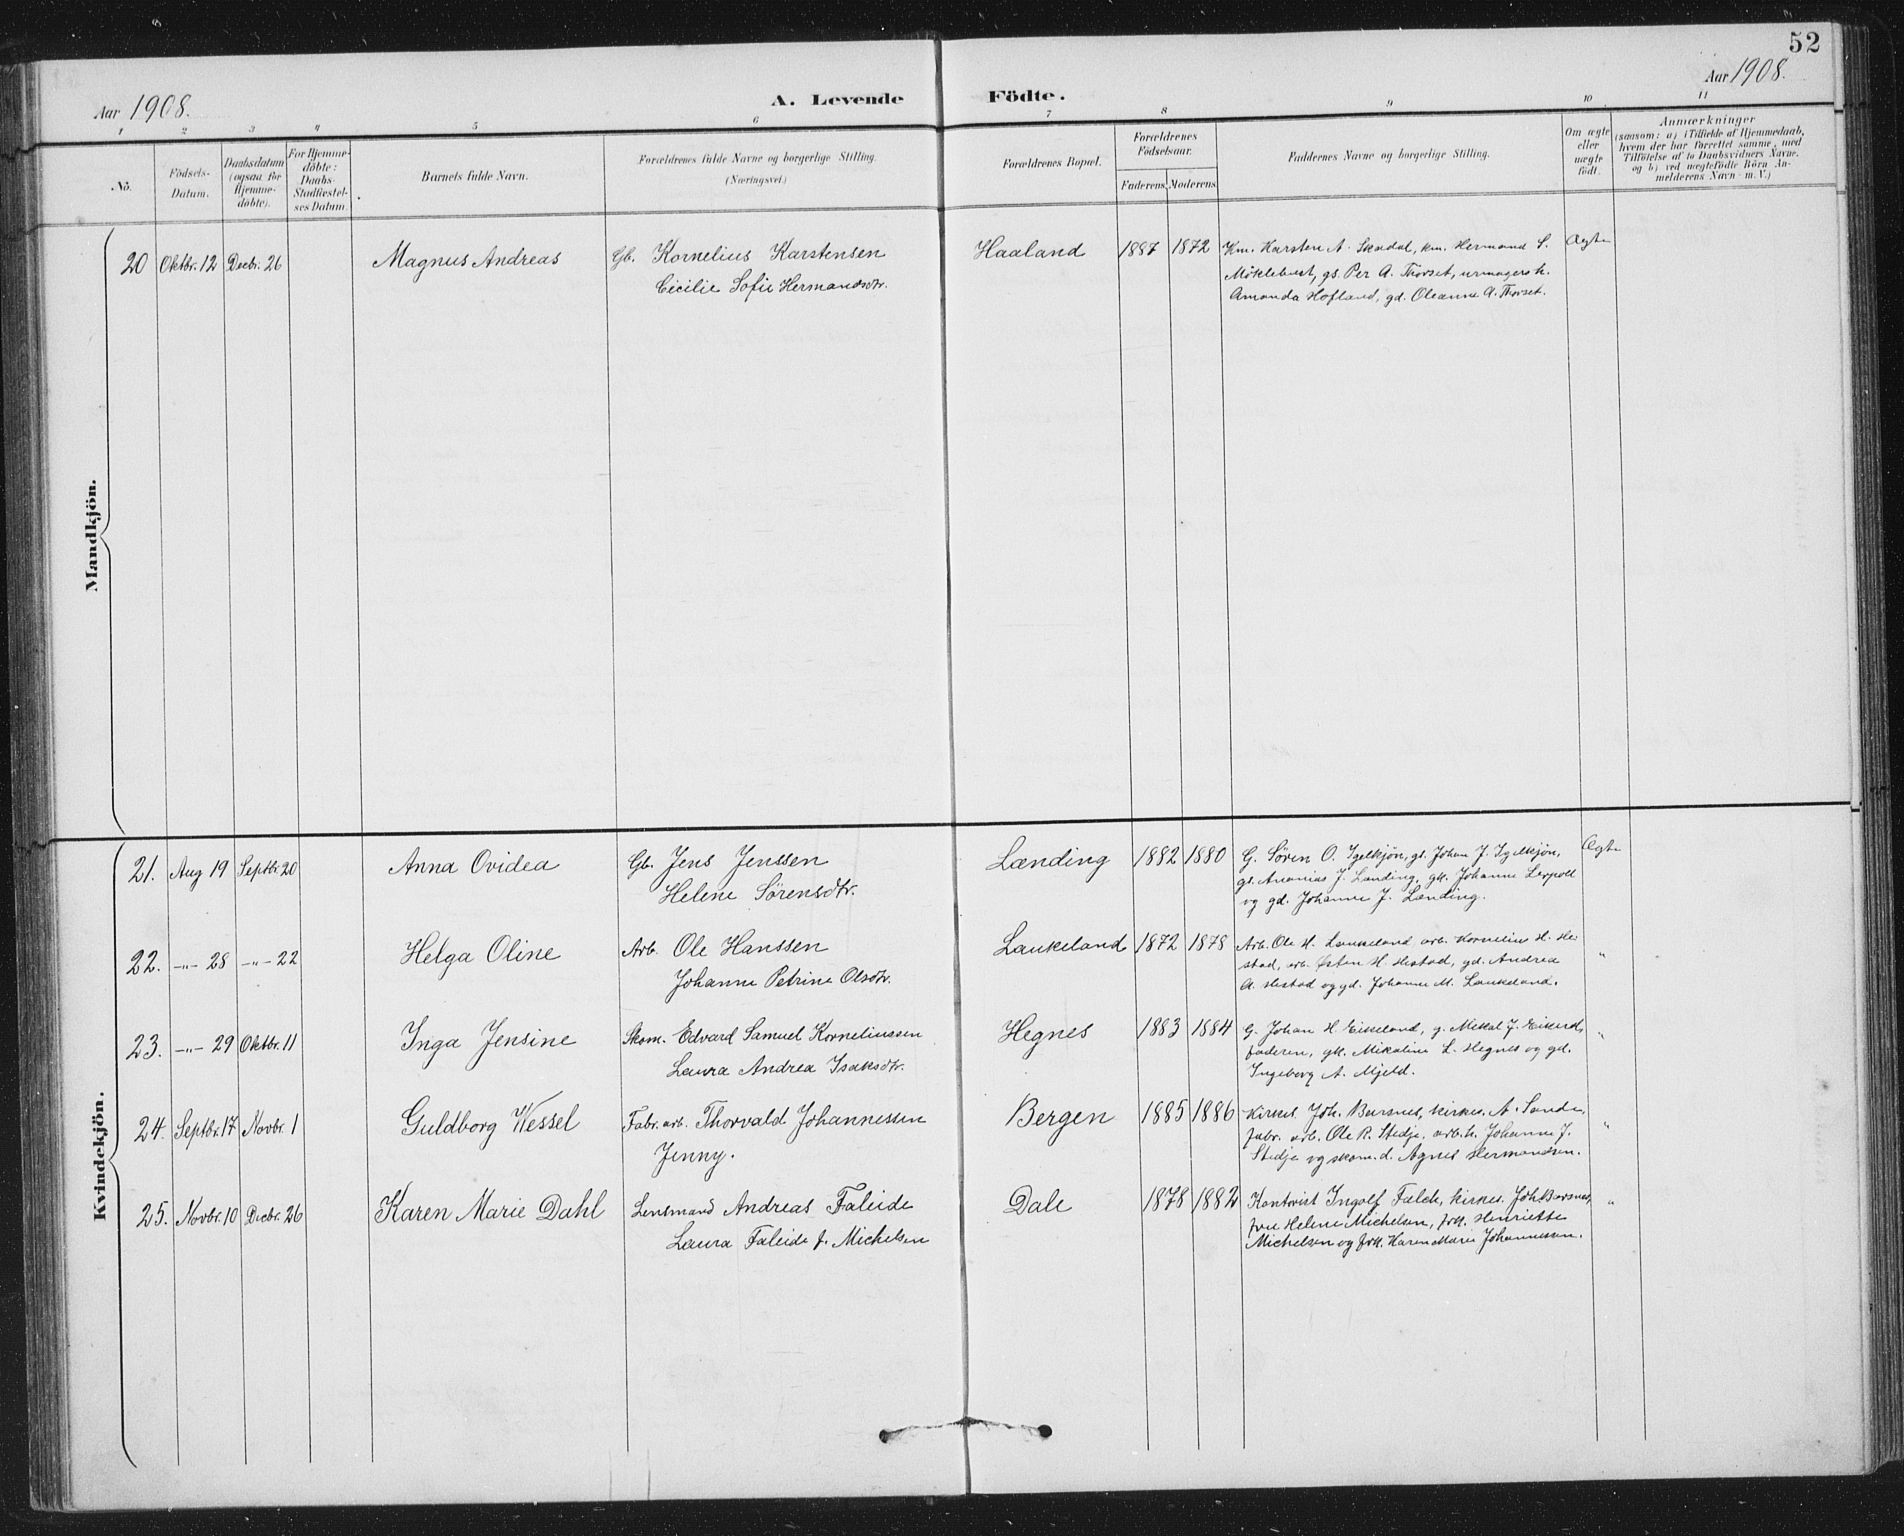 52
Aar 1908. A. Levende Födte. Aar 1908.
1 2 3 4 5 6 7 8 9 10 11
No.
Födsels-
Datum.
Daabsdatum
(ogsaa for
Hjemme-
döbte).
For Hjemme-
döbte:
Daabs-
Stadfæstel-
ses Datum.
Barnets fulde Navn.
Forældrenes fulde Navne og borgerlige Stilling.
(Næringsvei.)
Forældrenes Bopæl.
Forældrenes
Födselsaar.
Faderens. Moderens.
Faddernes Navne og borgerlige Stilling.
Om ægte
eller
uægte
födt.
Anmærkninger
(saasom: a) i Tilfælde af Hjemmedaab,
hvem der har forrettet samme, med
Tilföielse af to Daabsvidners Navne,
og b) ved uægtefödte Börn An-
melderens Navn m. V.)
Mandkjön.
20 Oktbr. 12 Decbr. 26 Magnus Andreas Gb. Kornelius Karstensen Haaland 1887 1872 Km. Karsten A. Skordal, km. Hermand S. Ægte
Cicilie Sofie Hermandsdtr. Möklebust, gs. Per A. Thorset, urmagersk.
Amanda Hofland, gd. Oleanna A. Thorset.
Kvindekjön.
21. Aug 19 Septbr. 20 Anna Ovidea Gb. Jens Jenssen Lænding 1882 1880 G. Sören O. Igelkjön, gs. Johan J. Igelkjön, Ægte
Helene Sørensdtr. gs. Ananias J. Lænding, gk. Johanne Leypoll
og gd. Johanne J. Lænding.
22. -"- 28 -"- 22 Helga Oline Arb. Ole Hanssen Laukeland 1872 1878 Arb. Ole H. Laukeland arb. Kornelius H. He- "
Johanne Petrine Olsdtr. stad, arb. Østen H. Hestad, gd. Andrea
A. Hestad og gd. Johanne M. Laukeland.
23. -"- 29 Oktbr. 11 Inga Jensine Skom. Edvard Samuel Korneliussen Hegnes 1883 1884 G. Johan H. Eikeland, g. Mekal J. "
Laura Andrea Isaksdtr. faderen, gk. Mikaline L. Hegnes og gd.
Ingeborg A. Mjeld.
24. Septbr. 17 Novbr. 1 Guldborg Wessel Fabr. arb. Thorvald Johannessen Bergen 1885 1886 Kirkes. Joh. Barsnes, kirkes. A. Sande, "
Jenny. fabr. arb. Ole R. Stedje, arb. k. Johanne J.
Stedje og skom. d. Agnes Hermandsen.
25. Novbr. 10 Decbr. 26 Karen Marie Dahl Lensmand Andreas Faleide Dale 1878 1882 Kontorist Ingolf Falch, kirkes. Joh. Barsnes, "
Laura Faleide f. Michelsen fru Helene Michelsen, frk. Henriette
Michelsen og frk. Karen Marie Johannessen.